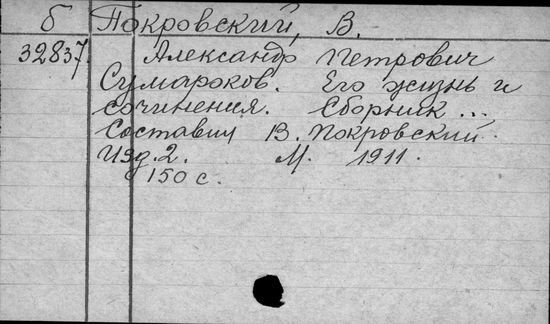 б Покровский, В.
32837. Александр Петрович
Сумароков. Его жизнь и
сочинения. Сборник ...
Составил В. Покровский.
Изд. 2. М. 1911.
150 с.